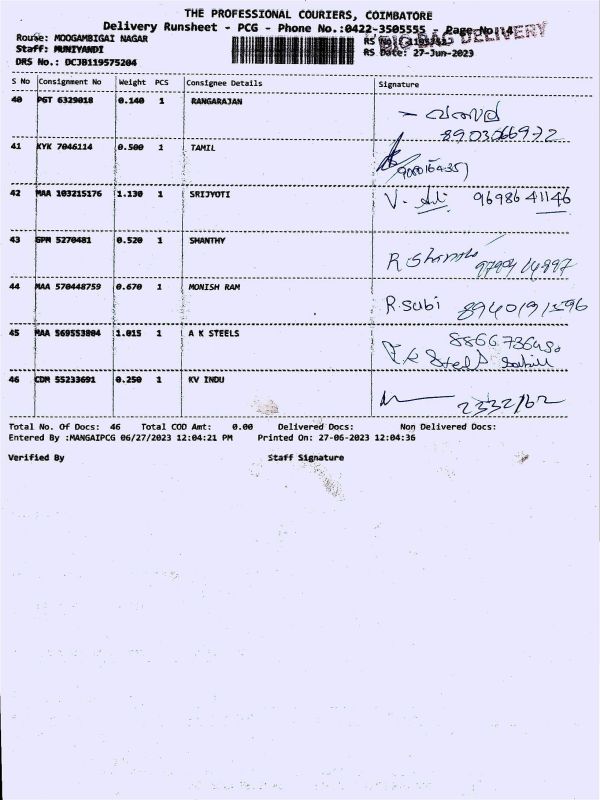 THE PROFESSIONAL COURIERS, COIMBATORE
Delivery Runsheet - PCG - Phone No.:0422-3505555 - Page No:14
BIG BAG DELIVERY
Rouse: MOOGAMBIGAI NAGAR
RS No.:
Staff: MUNIYANDI
RS Date: 27-Jun-2023
DRS No.: DCJB119575204
S No Consignment No Weight PCS Consignee Details Signature
40 PGT 6329018 0.140 1 RANGARAJAN
8903066972
41 KYK 7046114 0.500 1 TAMIL
42 MAA 103215176 1.130 1 SRIJYOTI V. 9698641146
43 GPM 5270481 0.520 1 SHANTHY
R Shantha
44 MAA 570448759 0.670 1 MONISH RAM
R.subi
45 MAA 569553804 1.015 1 A K STEELS
Steel
46 CDM 55233691 0.250 1 KV INDU
2332162
Total No. Of Docs: 46 Total COD Amt: 0.00 Delivered Docs: Non Delivered Docs:
Entered By :MANGAIPCG 06/27/2023 12:04:21 PM Printed On: 27-06-2023 12:04:36
Verified By Staff Signature